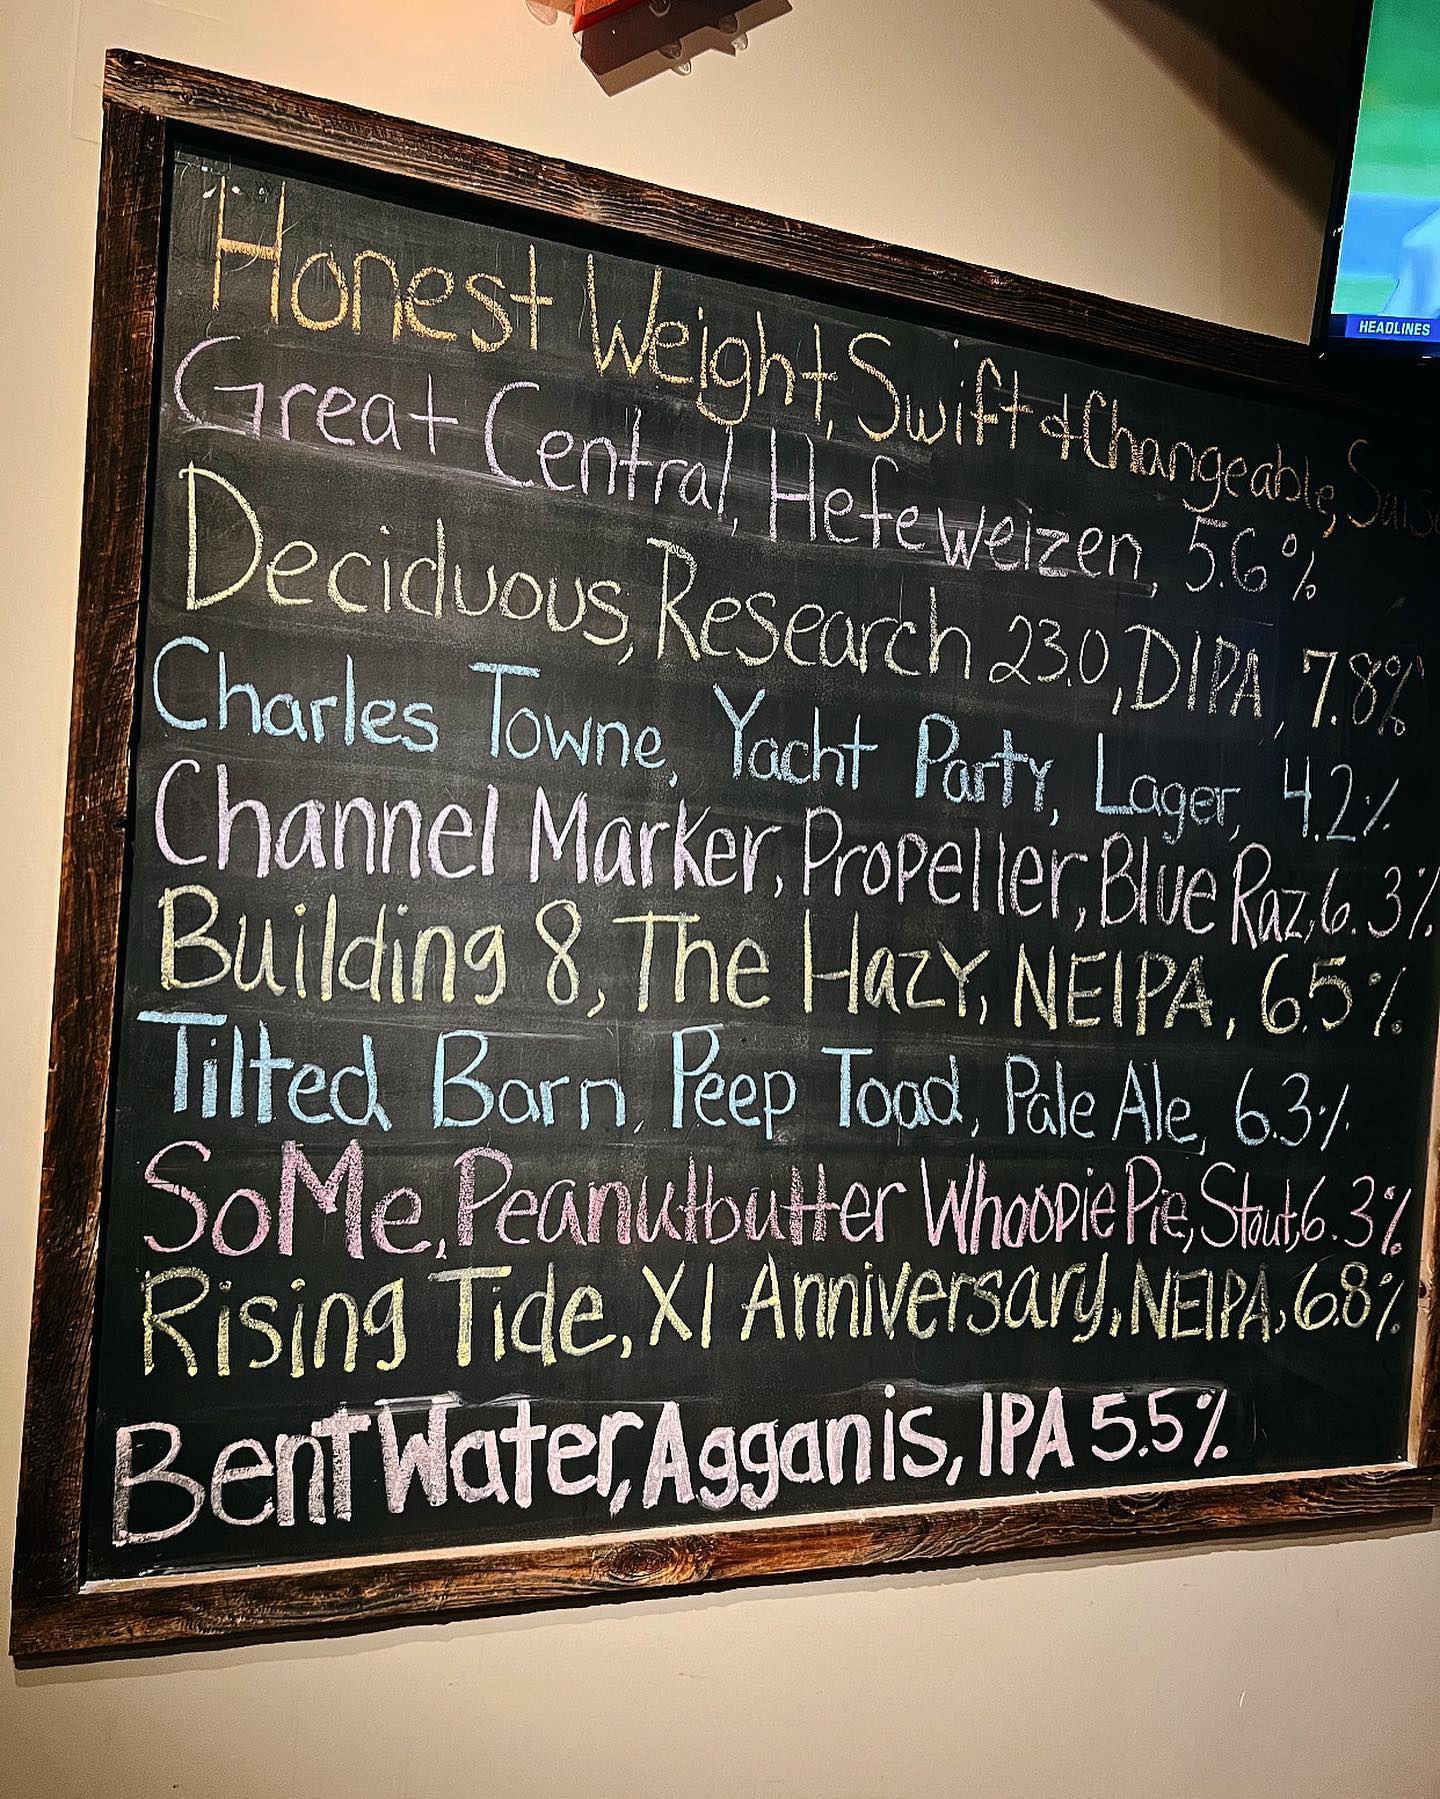 HEADLINES
Honest Weight, Swift & Changeable,
Great Central, Hefeweizen, 5.6%
Deciduous, Research 23.0, DIPA, 7.8%
Charles Towne, Yacht Party, Lager, 4.2%
Channel Marker, Propeller, Blue Raz, 6.3%
Building 8, The Hazy, NEIPA, 6.5%
Tilted Barn, Peep Toad, Pale Ale, 6.3%
SoMe, Peanutbutter Whoopie Pie, Stout, 6.3%
Rising Tide, XI Anniversary, NEIPA, 6.8%
Bent Water, Agganis, IPA 5.5%